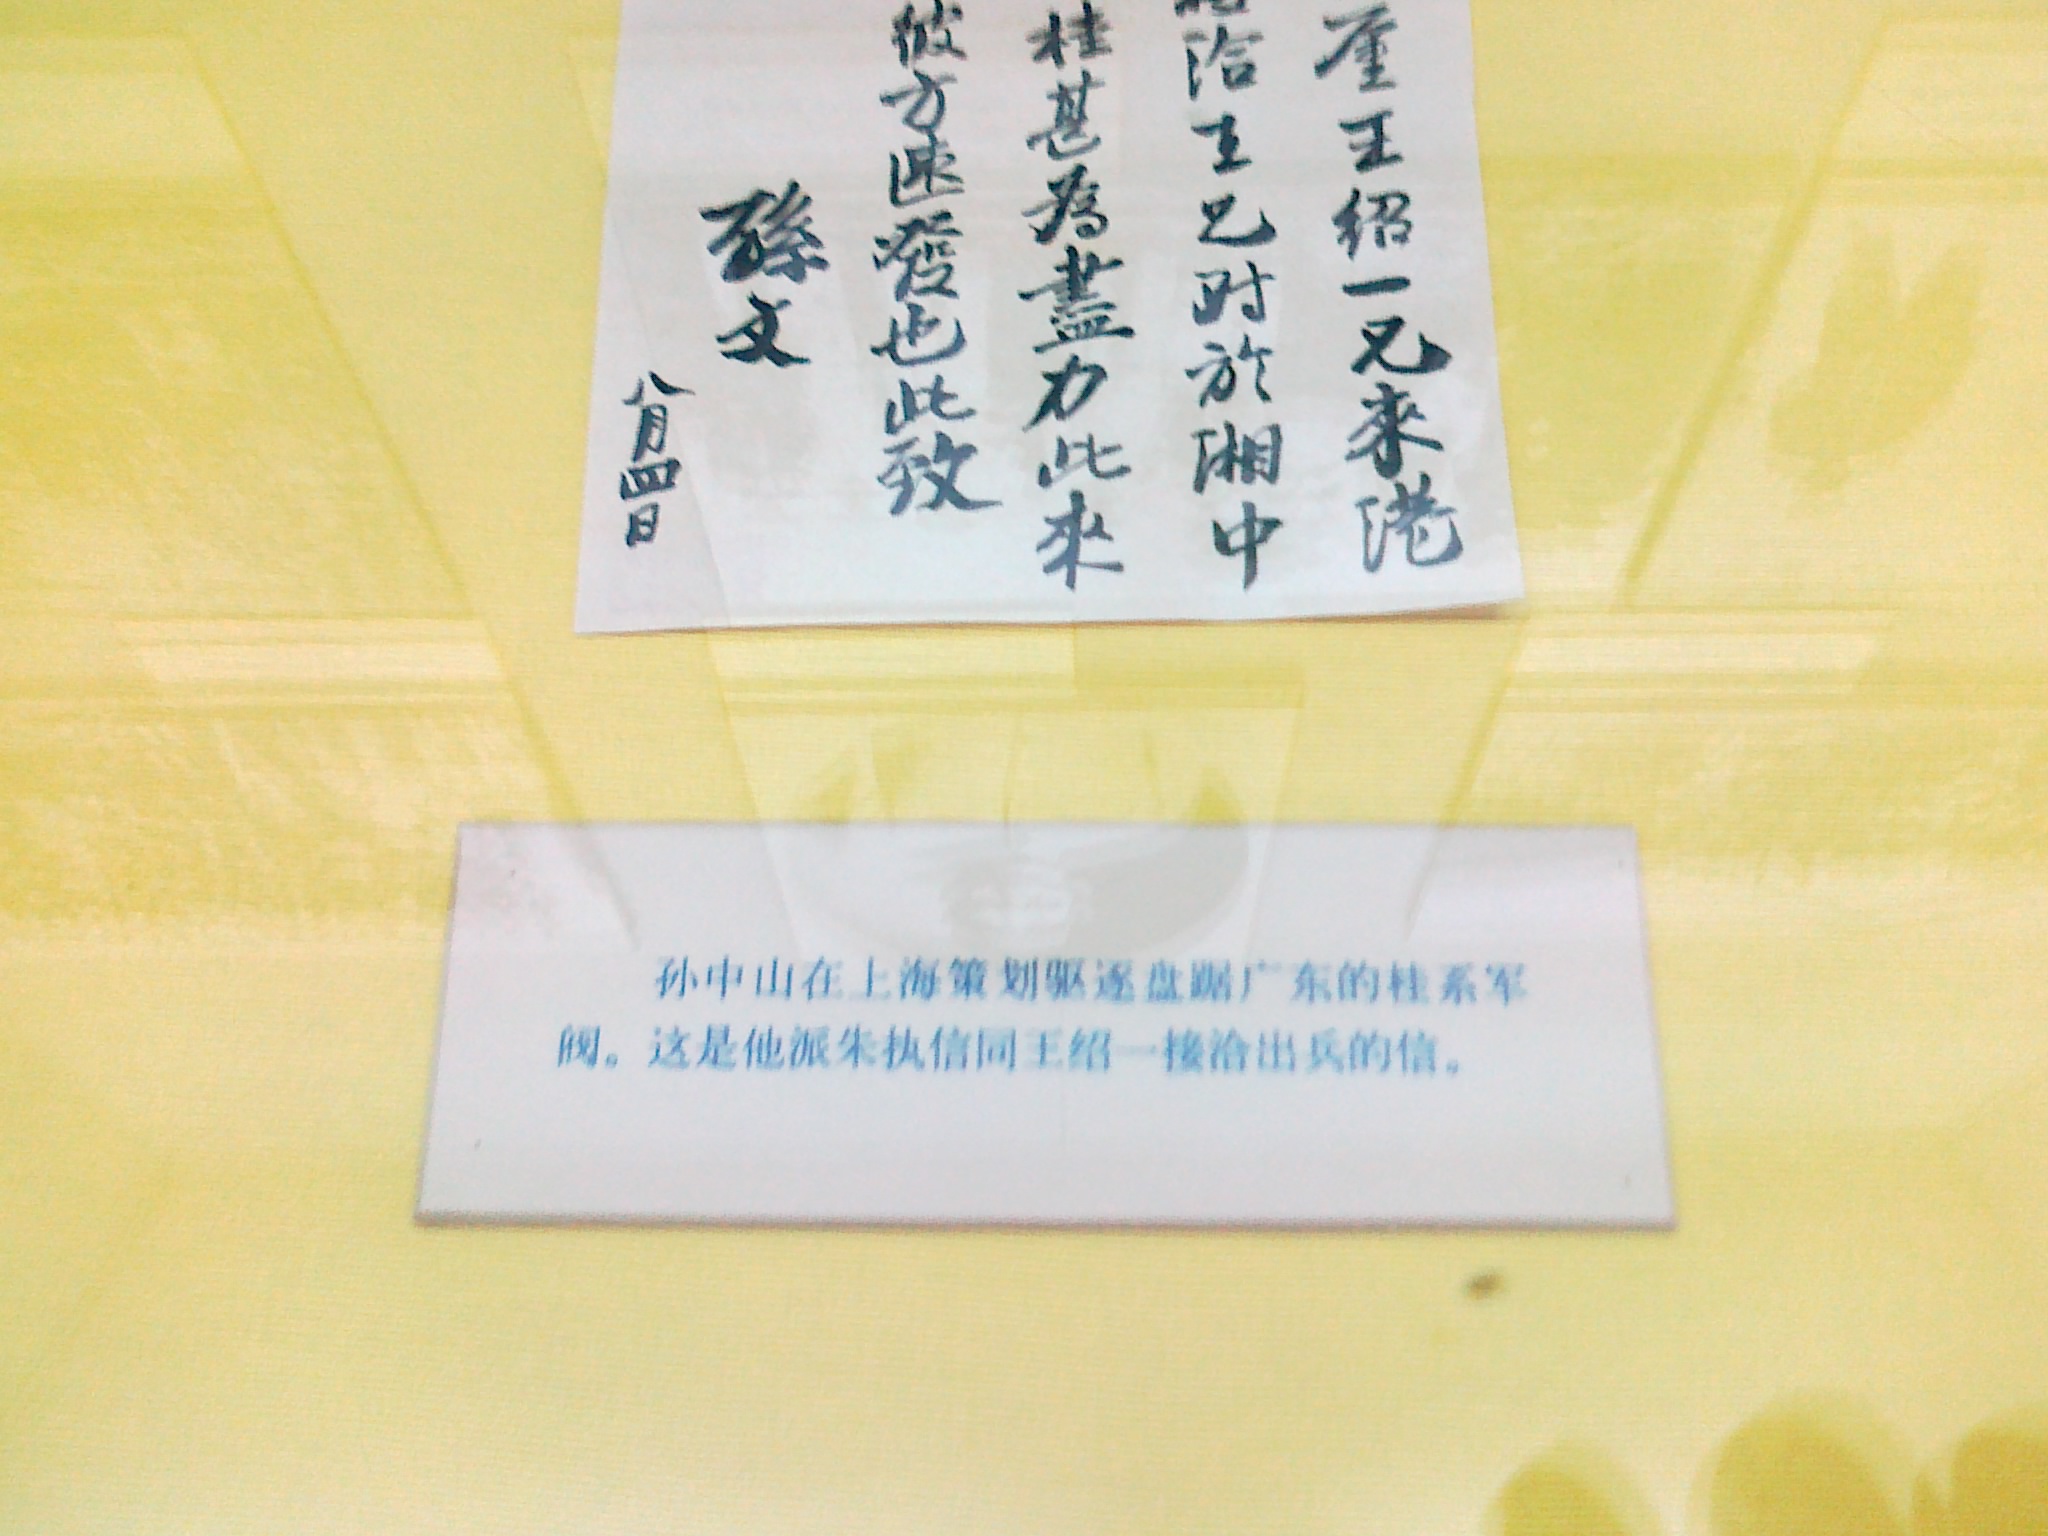 王绍一兄來港
洽王兄时於湘中
桂甚為盡力此來
彼方速發也此致
孫文
八月四日
孙中山在上海策划驱逐盘踞广东的桂系军
阀。这是他派朱执信同王绍一接洽出兵的信。